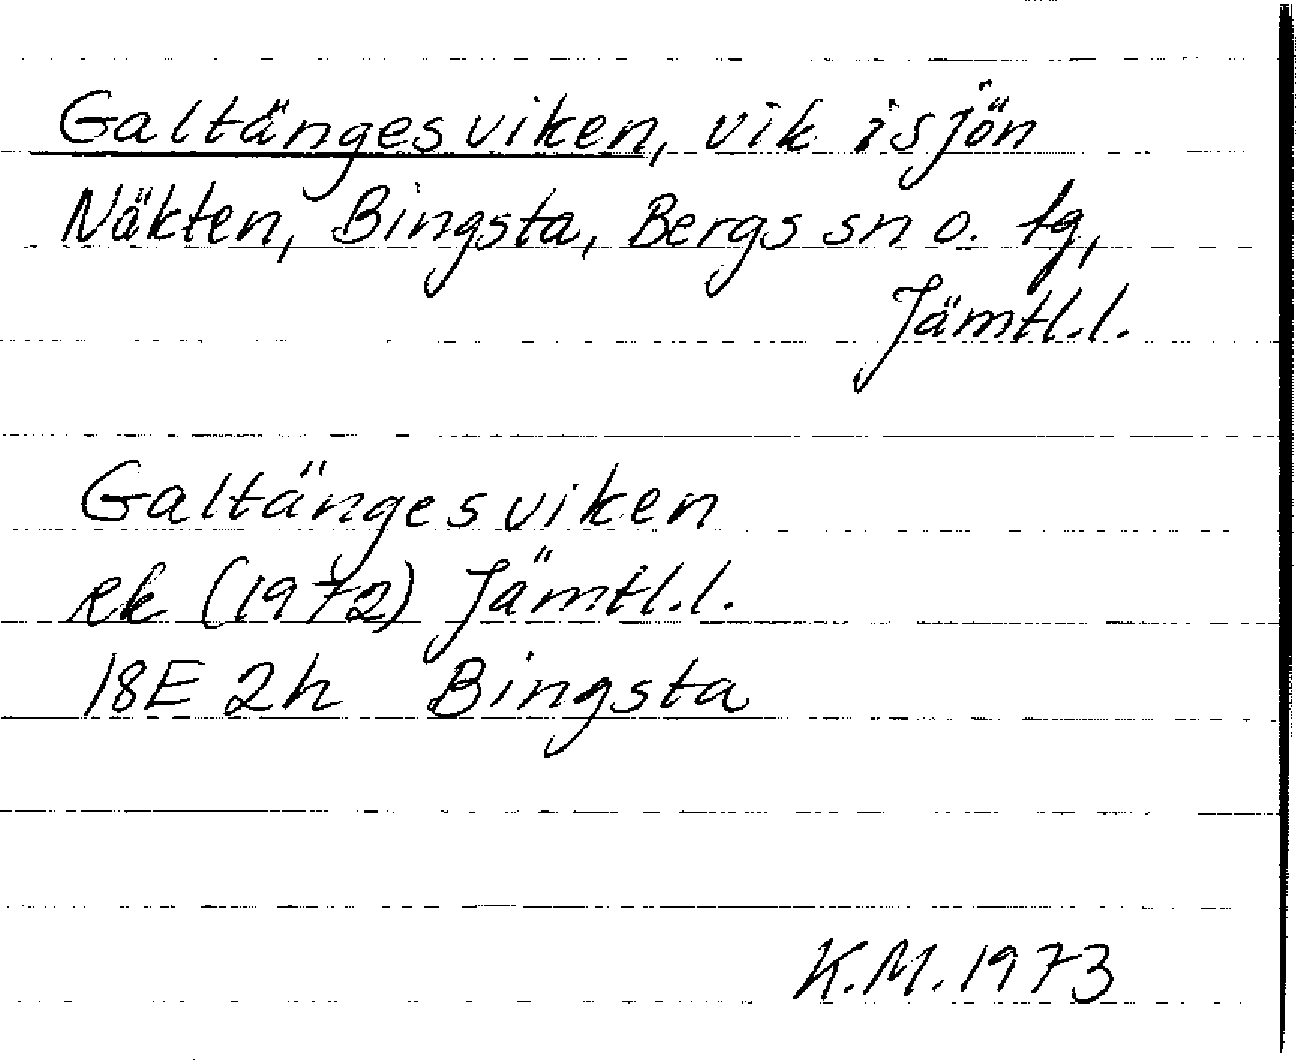 Galtängesviken, vik i sjön
Näkten, Bingsta, Bergs sn o. tg,
Jämtl.l.
Galtängesviken
Rk (1972) Jämtl.l.
18E 2h Bingsta
K.M. 1973